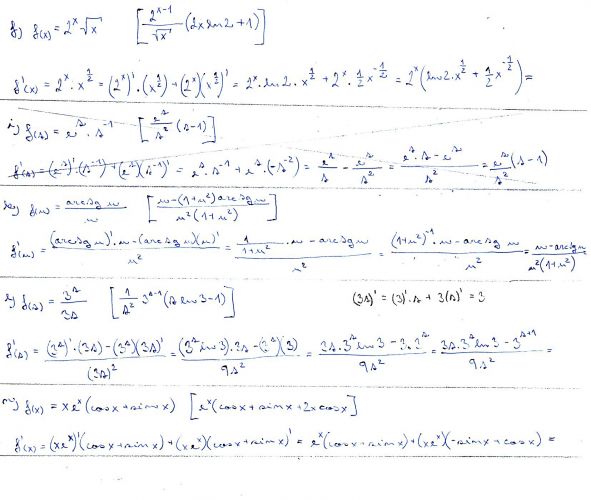 j) f(x) = 2^x √x [2^(x-1)/√x (2x ln 2 + 1)]
f'(x) = 2^x · x^(1/2) = (2^x)' · (x^(1/2)) + (2^x)(x^(1/2))' = 2^x · ln 2 · x^(1/2) + 2^x · 1/2 x^(-1/2) = 2^x (ln 2 · x^(1/2) + 1/2 x^(-1/2)) =
f(s) = e^s · s^(-1) [e^s/s² (s-1)]
f'(s) = (e^s)' · (s^(-1)) + (e^s)(s^(-1))' = e^s · s^(-1) + e^s · (-s^(-2)) = e^s/s - e^s/s² = (e^s · s - e^s)/s² = e^s/s² (s-1)
f(u) = arctg u/u [(u-(1+u²) arctg u)/(u²(1+u²))]
f'(u) = ((arctg u)' · u - (arctg u)(u)')/u² = (1/(1+u²) · u - arctg u)/u² = ((1+u²)^(-1) · u - arctg u)/u² = (u - arctg u)/(u²(1+u²))
f(s) = 3^s/3s [1/s² 3^(s-1) (s ln 3 - 1)] (3s)' = (3)' · s + 3(s)' = 3
f'(s) = ((3^s)' · (3s) - (3^s)(3s)')/(3s)² = ((3^s ln 3) · 3s - (3^s)(3))/9s² = (3s · 3^s ln 3 - 3 · 3^s)/9s² = (3s · 3^s ln 3 - 3^(s+1))/9s² =
f(x) = x e^x (cos x + sin x) [e^x (cos x + sin x + 2x cos x)]
f'(x) = (x e^x)' (cos x + sin x) + (x e^x)(cos x + sin x)' = e^x (cos x + sin x) + (x e^x)(-sin x + cos x) =